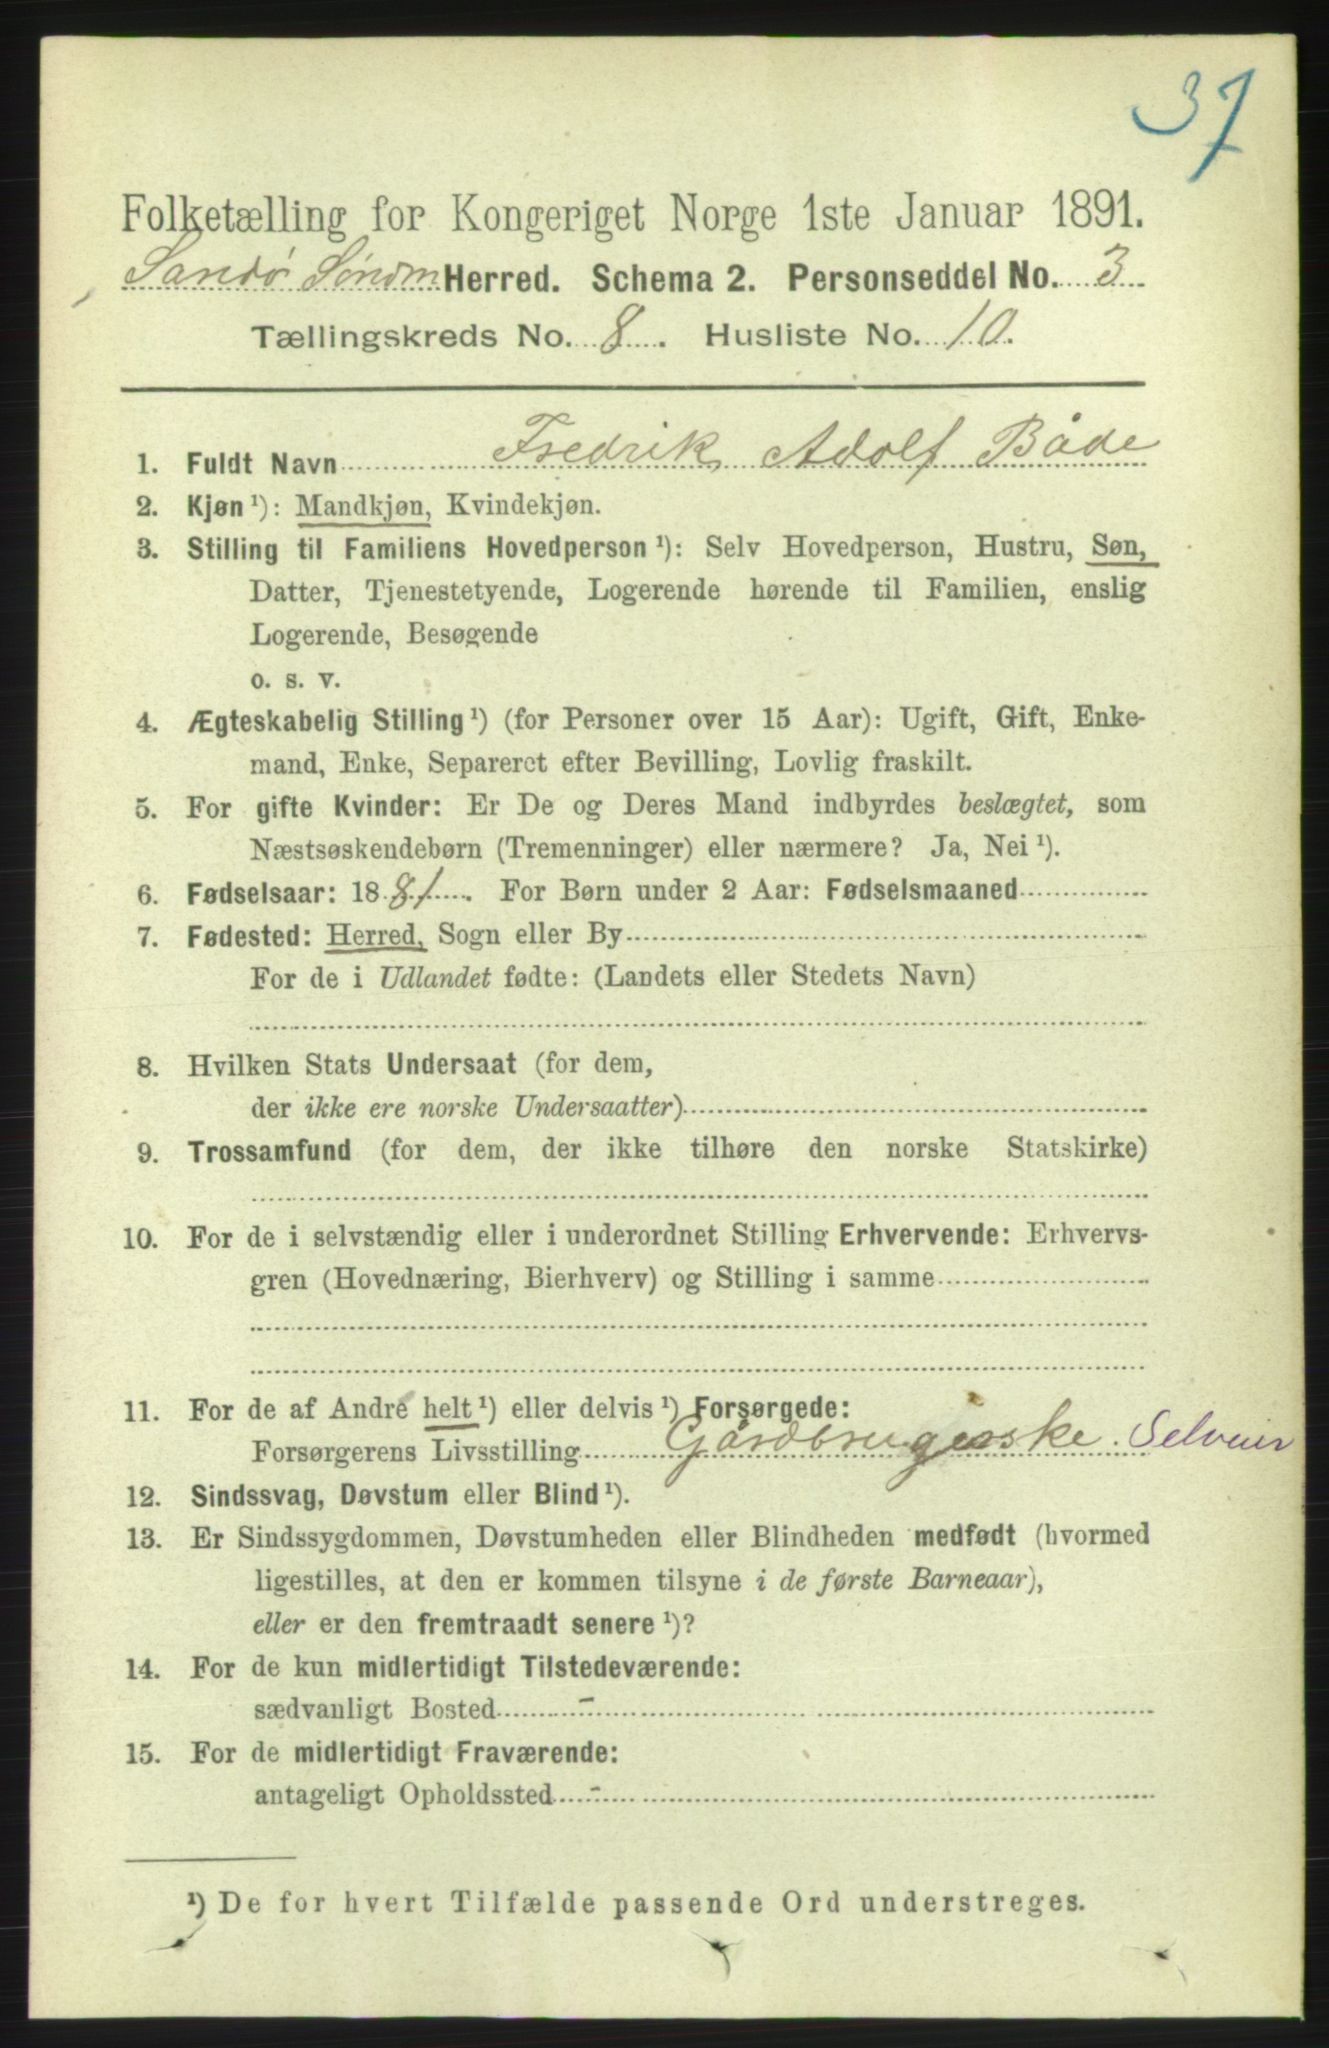 37
Folketælling for Kongeriget Norge 1ste Januar 1891.
Sandø Søndm Herred. Schema 2. Personseddel No. 3
Tællingskreds No. 8. Husliste No. 10.
1. Fuldt Navn Fredrik Adolf Både
2. Kjøn ¹): Mandkjøn, Kvindekjøn.
3. Stilling til Familiens Hovedperson ¹): Selv Hovedperson, Hustru, Søn,
Datter, Tjenestetyende, Logerende hørende til Familien, enslig
Logerende, Besøgende
o. s. v.
4. Ægteskabelig Stilling ¹) (for Personer over 15 Aar): Ugift, Gift, Enke-
mand, Enke, Separeret efter Bevilling, Lovlig fraskilt.
5. For gifte Kvinder: Er De og Deres Mand indbyrdes beslægtet, som
Næstsøskendebørn (Tremenninger) eller nærmere? Ja, Nei ¹).
6. Fødselsaar: 1881. For Børn under 2 Aar: Fødselsmaaned
7. Fødested: Herred, Sogn eller By
For de i Udlandet fødte: (Landets eller Stedets Navn)
8. Hvilken Stats Undersaat (for dem,
der ikke ere norske Undersaatter)
9. Trossamfund (for dem, der ikke tilhøre den norske Statskirke)
10. For de i selvstændig eller i underordnet Stilling Erhvervende: Erhvervs-
gren (Hovednæring, Bierhverv) og Stilling i samme
11. For de af Andre helt ¹) eller delvis ¹) Forsørgede:
Forsørgerens Livsstilling Gårdbrugerske. Selveier
12. Sindssvag, Døvstum eller Blind ¹).
13. Er Sindssygdommen, Døvstumheden eller Blindheden medfødt (hvormed
ligestilles, at den er kommen tilsyne i de første Barneaar),
eller er den fremtraadt senere ¹)?
14. For de kun midlertidigt Tilstedeværende:
sædvanligt Bosted -
15. For de midlertidigt Fraværende:
antageligt Opholdssted -
¹) De for hvert Tilfælde passende Ord understreges.